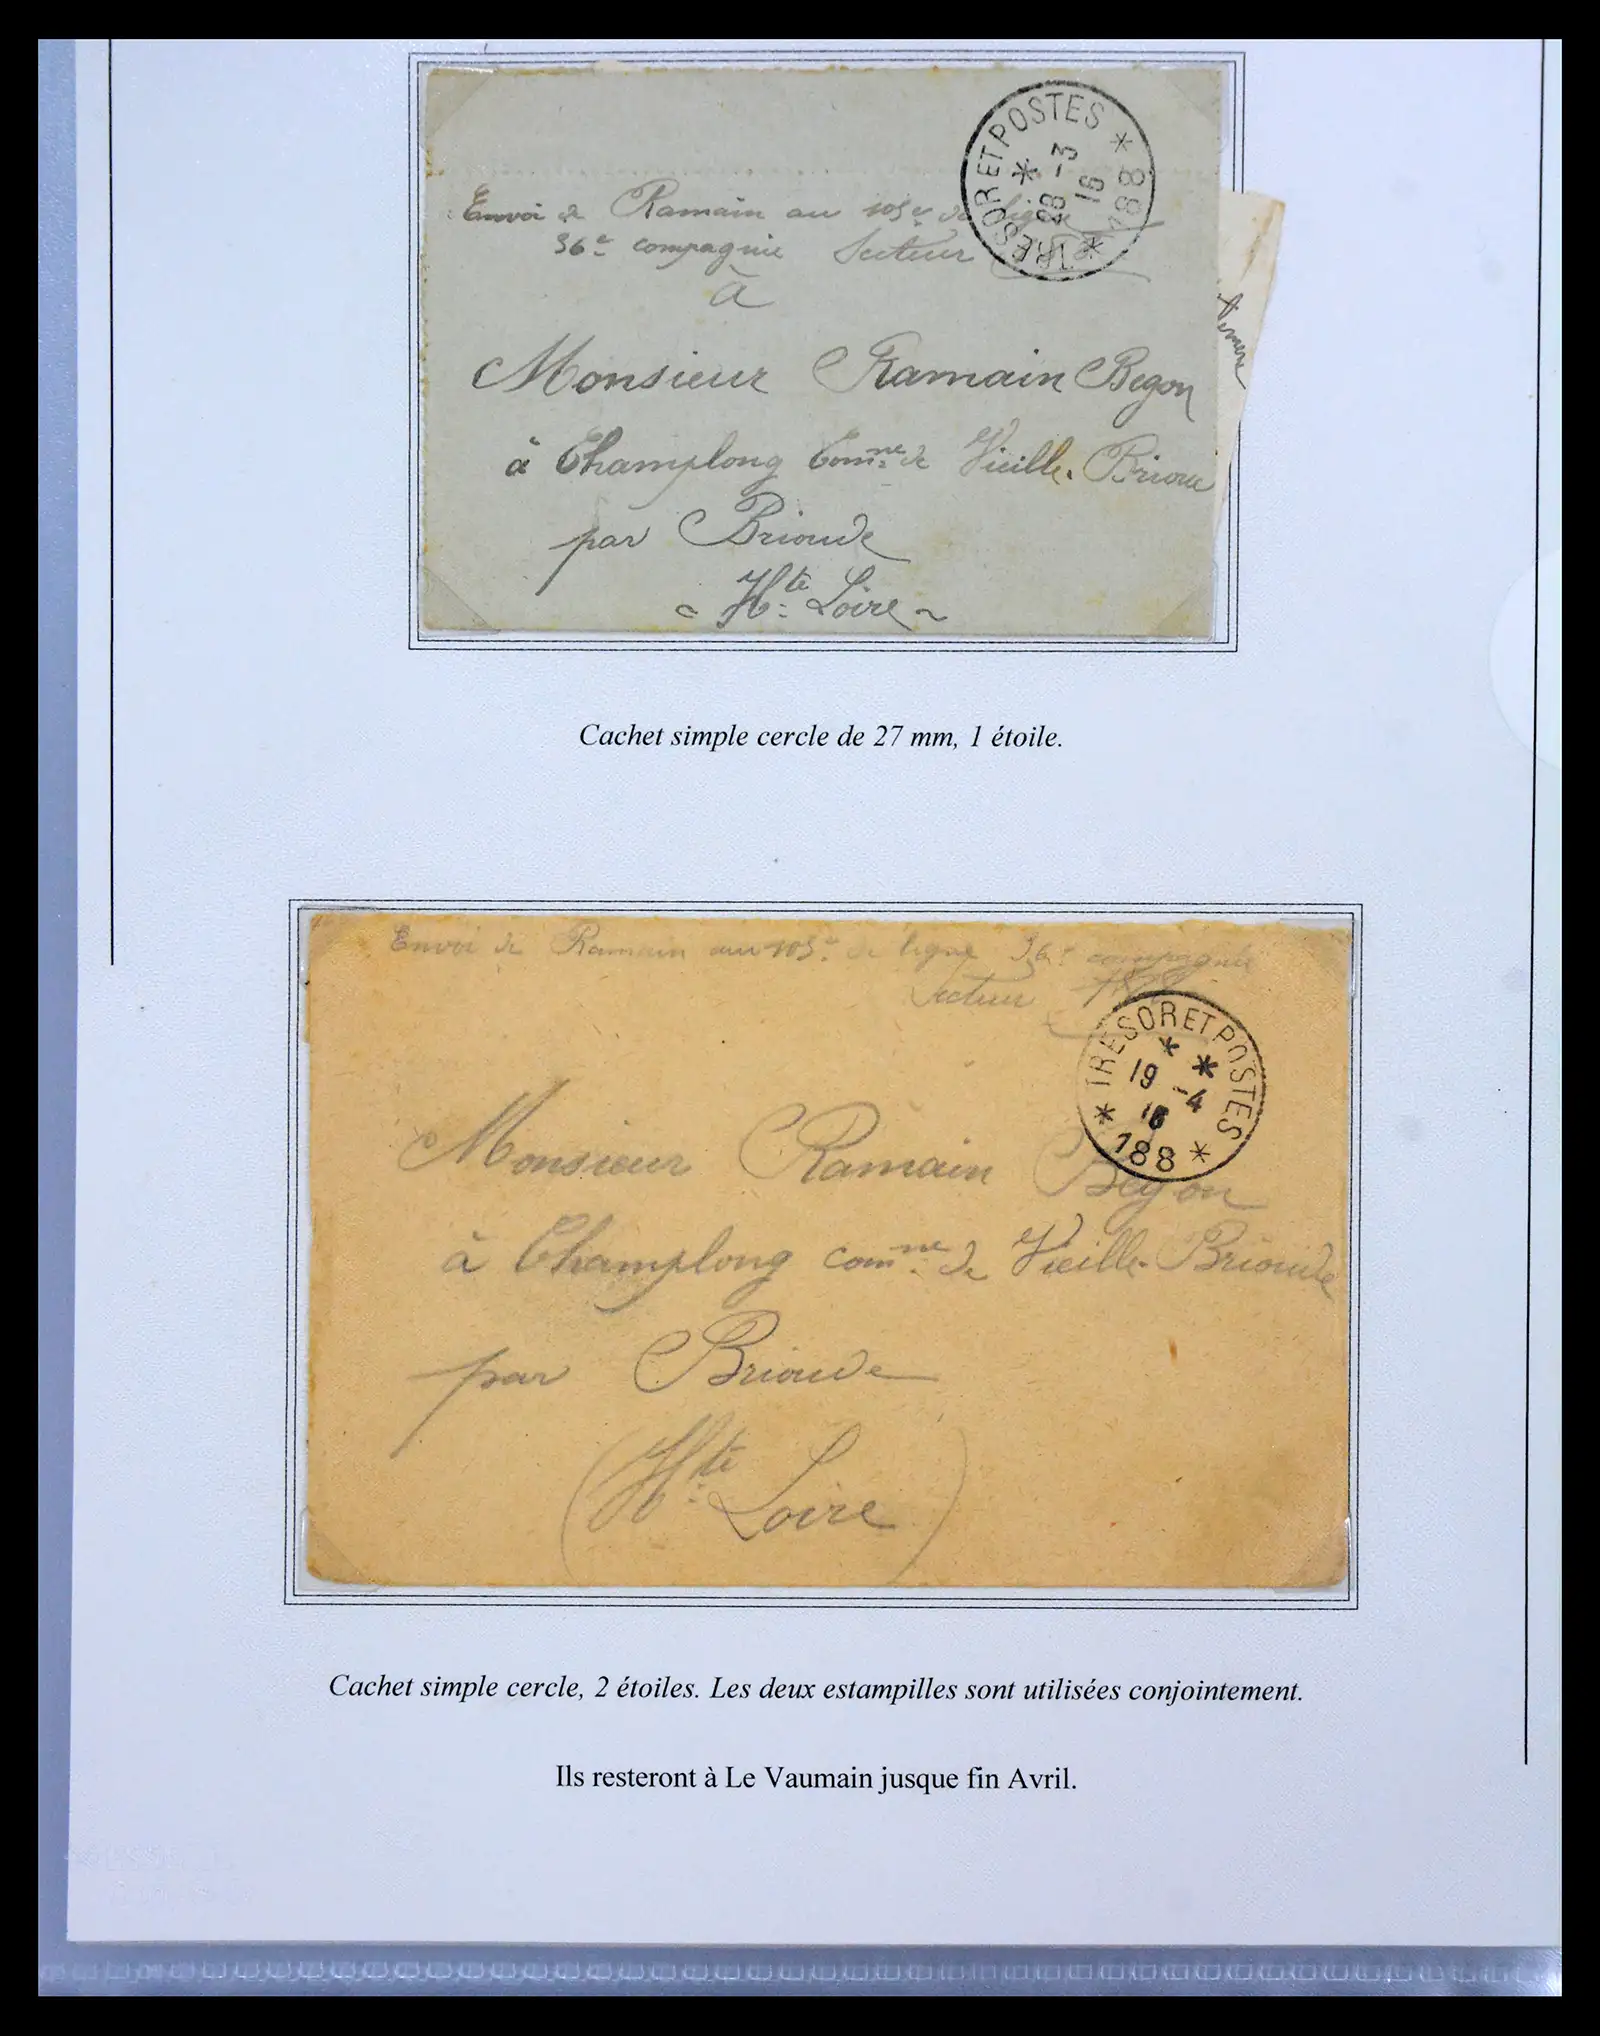 TRESOR ET POSTES
*
28 -3
16
* 188 *
Envoi de Ramain au 105e de ligne
36e compagnie Secteur
à
Monsieur Ramain Begon
à Champlong Comne de Vieille-Brioude
par Brioude
Hte Loire
Cachet simple cercle de 27 mm, 1 étoile.
Envoi de Ramain au 105e de ligne 36e compagnie
Secteur 188
TRESOR ET POSTES
* *
19 -4
16
* 188 *
Monsieur Ramain Begon
à Champlong comne de Vieille-Brioude
par Brioude
(Hte Loire)
Cachet simple cercle, 2 étoiles. Les deux estampilles sont utilisées conjointement.
Ils resteront à Le Vaumain jusque fin Avril.